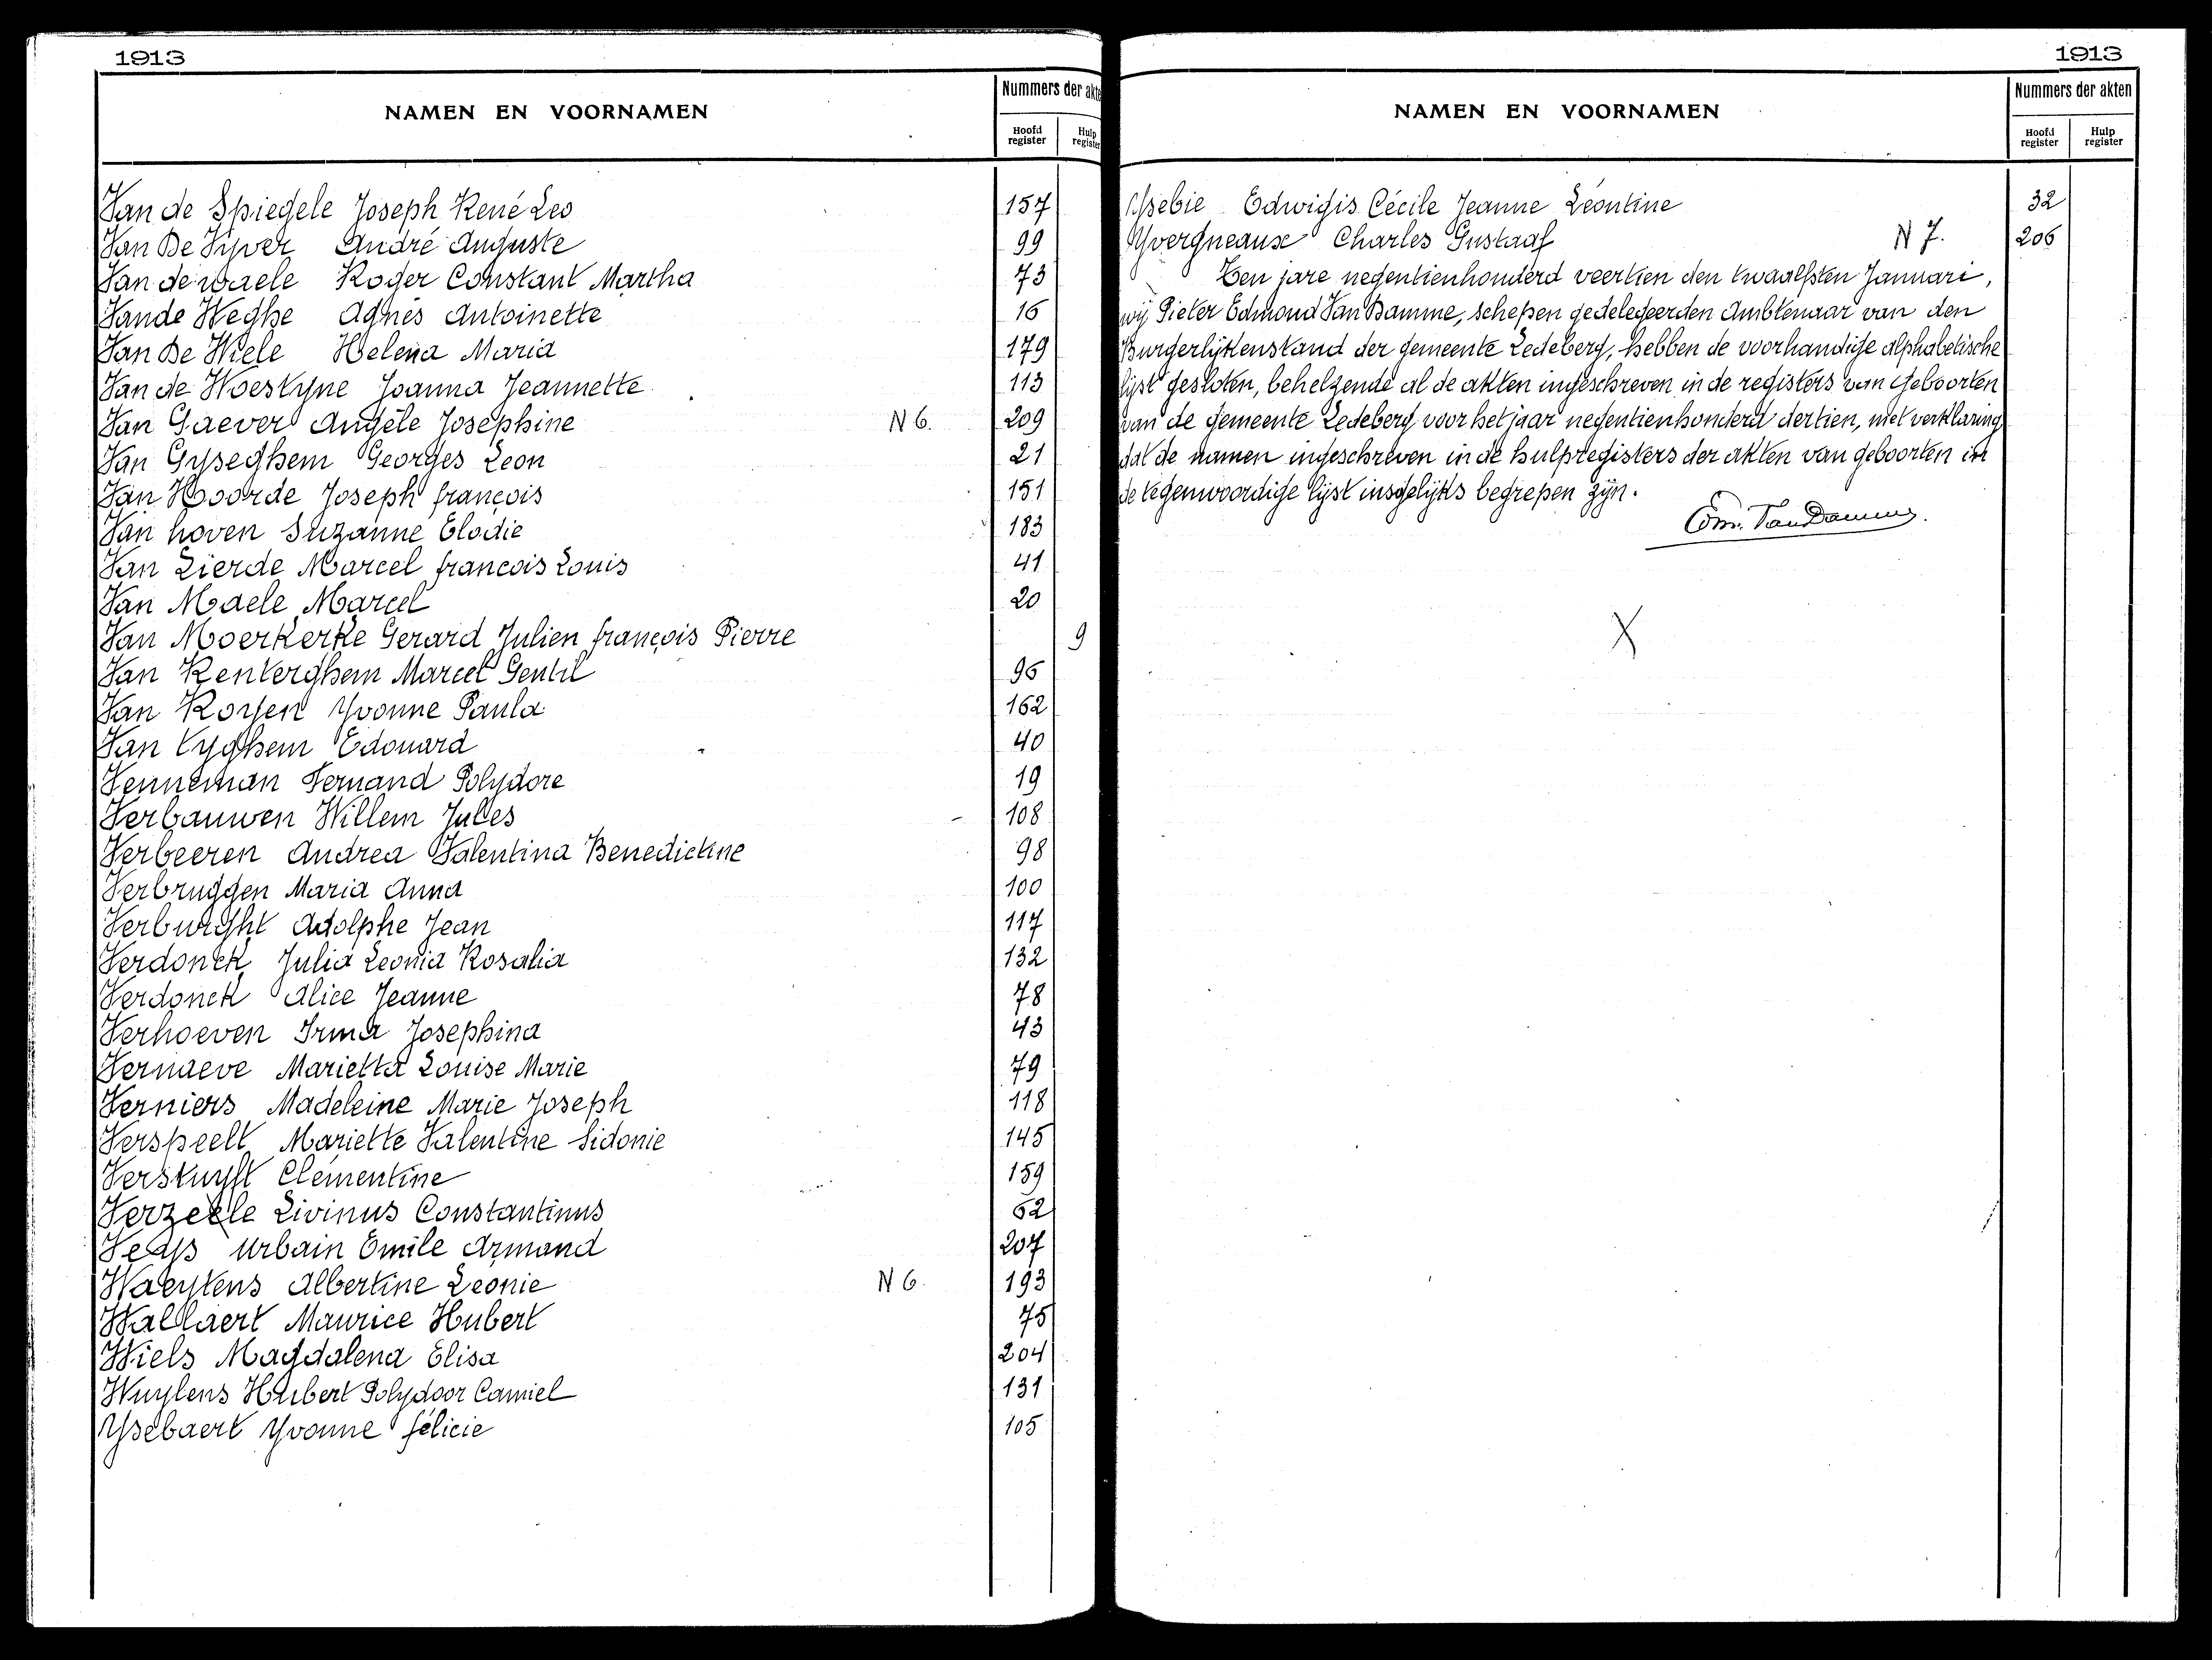 1913
NAMEN EN VOORNAMEN
Nummers der akte
Hoofd register
Hulp register
Van de Spiegele Joseph René Leo 157
Van De Vyver André Auguste 99
Van de waele Roger Constant Martha 73
Van de Weghe Agnès Antoinette 16
Van De Wiele Helena Maria 179
Van de Woestyne Joanna Jeannette 113
Van Gaever Angèle Josephine N 6. 209
Van Gyseghem Georges Leon 21
Van Hoorde Joseph françois 151
Van hoven Suzanne Elodie 183
Van Lierde Marcel francois Louis 41
Van Maele Marcel 20
Van Moerkerke Gerard Julien françois Pierre 9
Van Renterghem Marcel Gentil 96
Van Royen Yvonne Paula 162
Van tyghem Edouard 40
Venneman Fernand Polydore 19
Verbauwen Willem Jules 108
Verbeeren Andrea Valentina Benedictine 98
Verbruggen Maria Anna 100
Verburght Adolphe Jean 117
Verdonck Julia Leonia Rosalia 132
Verdonck Alice Jeanne 78
Verhoeven Irma Josephina 43
Vernaeve Marietta Louise Marie 79
Verniers Madeleine Marie Joseph 118
Verspeelt Mariette Valentine Sidonie 145
Verstuyft Clementine 159
Verzeele Livinus Constantinus 62
Veys Urbain Emile Armand 207
Waeytens Albertine Leonie N 6. 193
Wallaert Maurice Hubert 75
Wiels Magdalena Elisa 204
Wuylens Hubert Polydoor Camiel 131
Ysebaert Yvonne félicie 105
1913
NAMEN EN VOORNAMEN
Nummers der akten
Hoofd register
Hulp register
Ysebie Edwigis Cécile Jeanne Léontine 32
Yvergneaux Charles Gustaaf N 7. 206
Ten jare negentienhonderd veertien den twaalfsten Januari,
wij Pieter Edmond Van Damme, schepen gedelegeerden Ambtenaar van den
Burgerlijkenstand der gemeente Ledeberg, hebben de voorhandige alphabetische
lijst gesloten, behelzende al de akten ingeschreven in de registers van Geboorten
van de gemeente Ledeberg voor het jaar negentienhonderd dertien, met verklaring
dat de namen ingeschreven in de hulpregisters der akten van geboorten in
de tegenwoordige lijst insgelijks begrepen zijn.
Edm. Van Damme
X